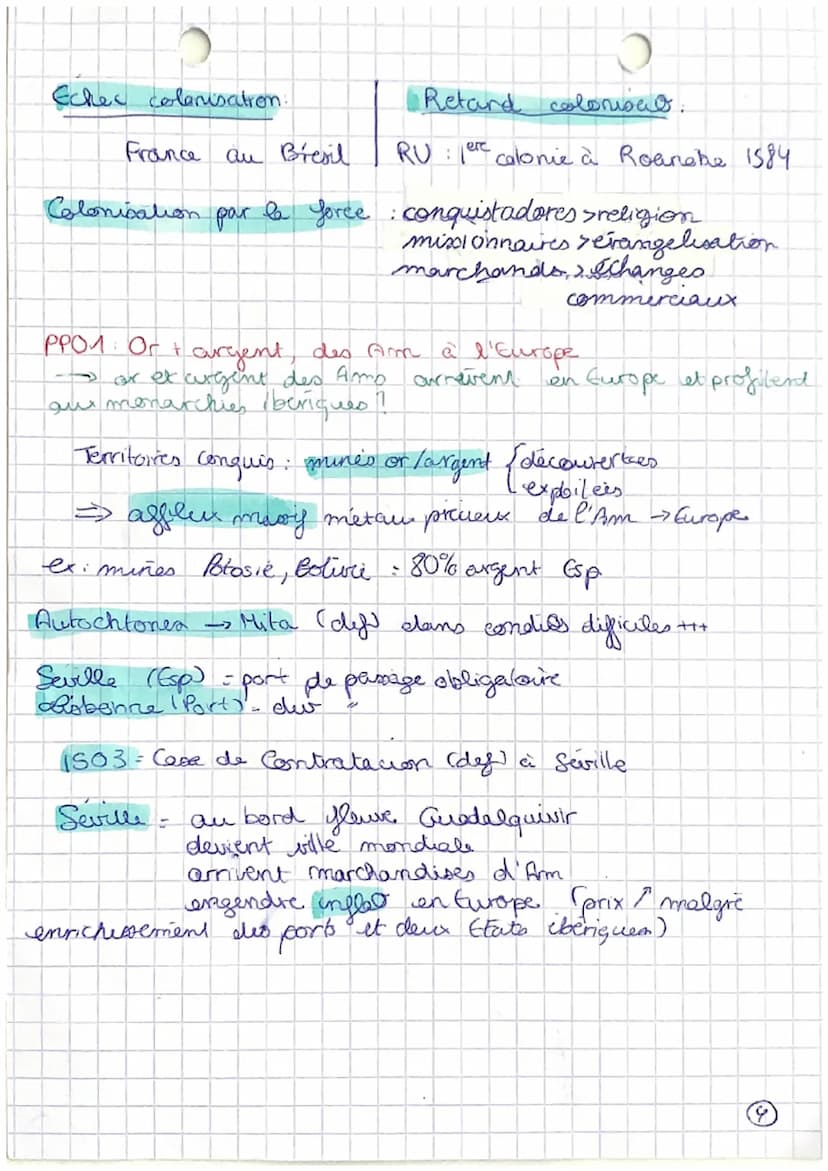 Echec colonisation. Retard colonisaº.
France au Brésil RU : 1ere colonie à Roanohe 1584
Colonisation par la force : conquistadores > religion
missionnaires > évangelisation
marchands > échanges
commerciaux
PPO1 : Or + argent, des Am à l'Europe
→ or et argent des Amo arrivent en Europe et profitent
aux monarchies ibériques ?
Territoires conquis : mines or/argent { découvertes
exploitées
⇒ afflux massif métaux précieux de l'Am → Europe
ex : mines Potosie, Bolivie = 80% argent Esp
Autochtones → Mita (def) dans condiº difficiles +++
Seville (Esp) = port de passage obligatoire
Lisbonne (Port) = "
1503 = Casa de Contratacion (def) à Séville
Séville = au bord fleuve Guadalquivir
devient ville mondiale
arrivent marchandises d'Am
engendre inflaº en Europe (prix ↗ malgré
enrichissement des ports et deux Etats ibériques)
4